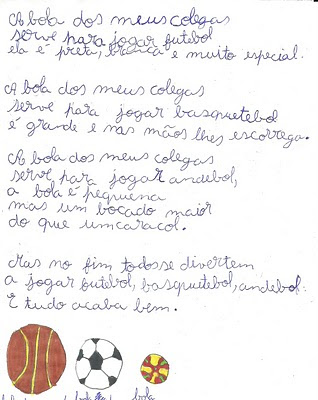 A bola dos meus colegas
serve para jogar futebol
ela é preta, branca e muito especial.
A bola dos meus colegas
serve para jogar basquetebol
é grande e nas mãos lhes escorrega.
A bola dos meus colegas
serve para jogar andebol,
a bola é pequena
mas um bocado maior
do que um caracol.
Mas no fim todos se divertem
a jogar futebol, basquetebol, andebol.
E tudo acaba bem.
bola